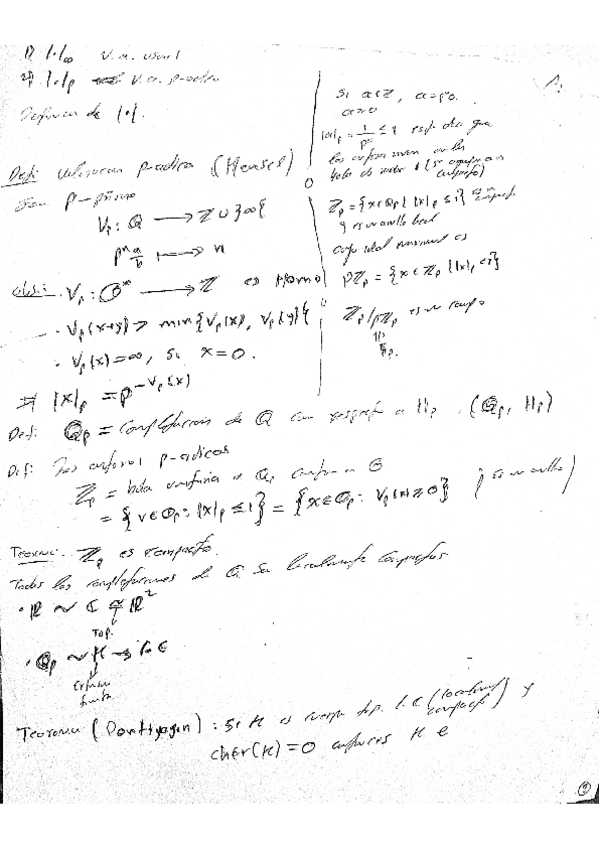 1) |·|∞ v.a. usual
2) |·|p v.a. p-adico
Definicion de |·|.
Def: valuacion p-adica (Hensel)
Sea p-primo
Vp: Q → Z ∪ {∞}
pⁿ a/b ↦ n
Obs: · Vp: Q* → Z es Homo
· Vp(x+y) ≥ min{Vp(x), Vp(y)}
· Vp(x)=∞, si x=0.
⇒ |x|p = p^(-Vp(x))
Si a∈Z,
|a|p = 1/pⁿ ≤ 1 esto dice que
los enteros viven en la
bola de radio 1
Zp = {x∈Qp | |x|p ≤ 1} es compacto
y es anillo local
cuyo ideal maximal es
pZp = {x∈Zp | |x|p <1}
Zp/pZp es un campo
Fp.
Def: Qp = Completacion de Q con respecto a | |p. (Qp, | |p)
Def: Los enteros p-adicos
Zp = bola unitaria en Qp
= {x∈Qp: |x|p ≤ 1} = {x∈Qp: Vp(x) ≥ 0} (es un anillo)
Teorema: Zp es compacto.
Todas las completaciones de Q son localmente compactas
· R ~ C ≅ R²
Top.
· Qp ~ K →
Extension
finita
Teorema (Pontryagin): Si K es cuerpo top. l.c (localmente compacto) y
char(K)=0 entonces K e